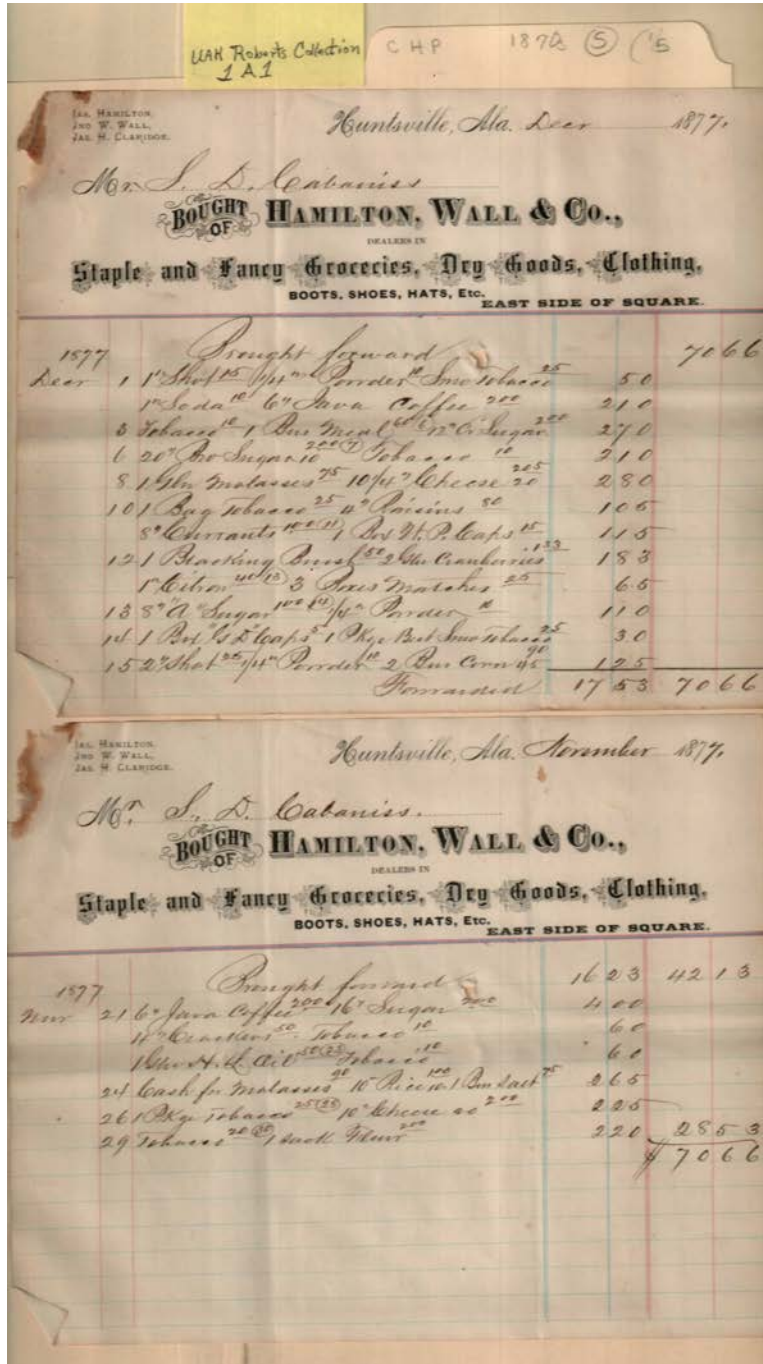 UAH Roberts Collection
1 A 1
C H P 1878 (5) ('5
JAS. HAMILTON,
JNO W. WALL,
JAS. H. CLARIDGE.
Huntsville, Ala. Decr 1877.
Mr. S. D. Cabaniss
BOUGHT OF HAMILTON, WALL & CO.,
DEALERS IN
Staple and Fancy Groceries, Dry Goods, Clothing,
BOOTS, SHOES, HATS, Etc. EAST SIDE OF SQUARE.
1877 Brought forward 70 66
Decr 1 1" Shot 15 1/4" Powder 10 Smo Tobacco 25 50
1" Soda 10 6" Java Coffee 200 2 10
3 Tobacco 10 1 Bus Meal 60 12" Sugar 200 2 70
6 20" Bro Sugar 10 200 (7) Tobacco 10 2 10
8 1 Gln Molasses 75 10 1/4" Cheese 20 205 2 80
10 1 Bag Tobacco 25 4" Raisins 80 1 05
8" Currants 100 (11) 1 Box W. P. Caps 15 1 15
12 1 Blacking Brush 50 2 Gls Cranberries 133 1 83
1" Citron 40 (13) 3 Boxes Matches 25 65
13 8" "A" Sugar 100 (14) 1/4" Powder 10 1 10
14 1 Box "G D" Caps 5 1 Pkge Best Smo Tobacco 25 30
15 2" Shot 25 1/4" Powder 10 2 Bus Corn 45 90 1 25
Forwarded 17 53 70 66
JAS. HAMILTON,
JNO W. WALL,
JAS. H. CLARIDGE.
Huntsville, Ala. November 1877.
Mr. S. D. Cabaniss.
BOUGHT OF HAMILTON, WALL & CO.,
DEALERS IN
Staple and Fancy Groceries, Dry Goods, Clothing,
BOOTS, SHOES, HATS, Etc. EAST SIDE OF SQUARE.
1877 Brought forward 16 23 42 13
Nov 21 6" Java Coffee 200 16" Sugar 200 4 00
Crackers 50 Tobacco 10 60
1 Gln H. L. Oil 50 (23) Tobacco 10 60
24 Cash for Molasses 90 10" Rice 10 100 1 Bus Salt 75 2 65
26 1 Pkge Tobacco 25 10" Cheese 20 200 2 25
29 Tobacco 20 1 sack Flour 200 2 20 28 53
$ 70 66